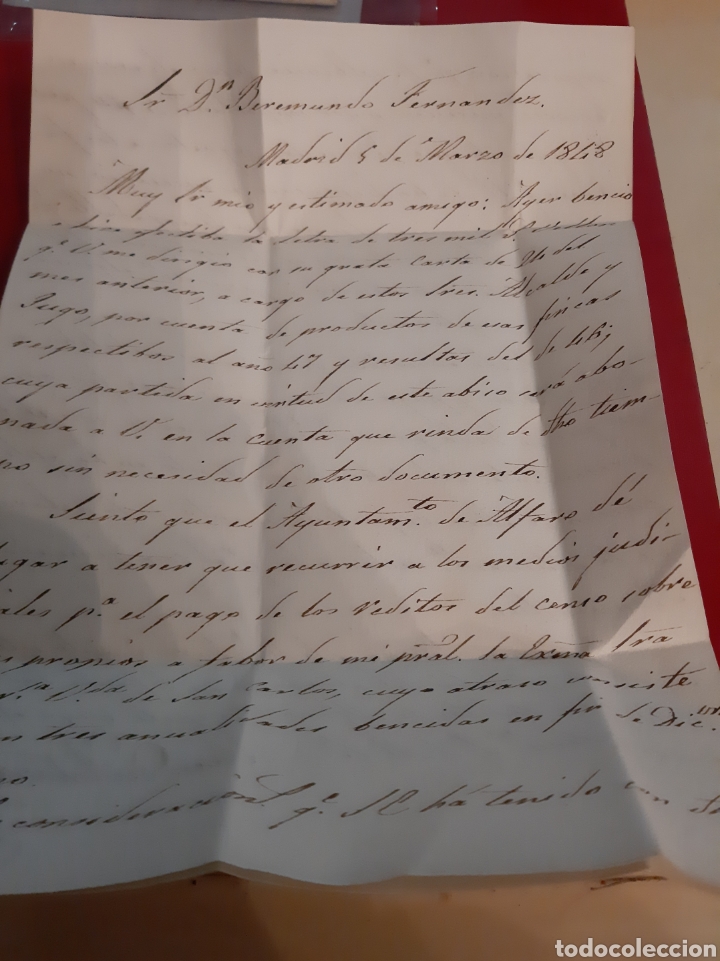 Sr. Dn. Beremundo Fernandez.
Madrid 5 de Marzo de 1848
Muy Sr mio y estimado amigo: Ayer bencio
hizo efectiba la letra de tres mil
q.e V. me dirigió con su grata carta de 26 del
mes anterior, a cargo de estos Sres. Alcalde y
Jugo, por cuenta de productos de esas fincas
respectibos al año 47 y resultas del de 46;
cuya partida en virtud de este abiso será abo-
nada a V. en la cuenta que rinda de dho tiem-
po sin necesidad de otro documento.
Siento que el Ayuntam.to de Alfaro dé
lugar a tener que recurrir a los medios judi-
iales p.a el pago de los reditos del censo sobre
s propios a fabor de mi pral. la Exma Sra
V.da de San Carlos, cuyo atraso consiste
en tres anualidades bencidas en fin de Dic.
o.
consideración q.e S.E. ha tenido con
todocoleccion